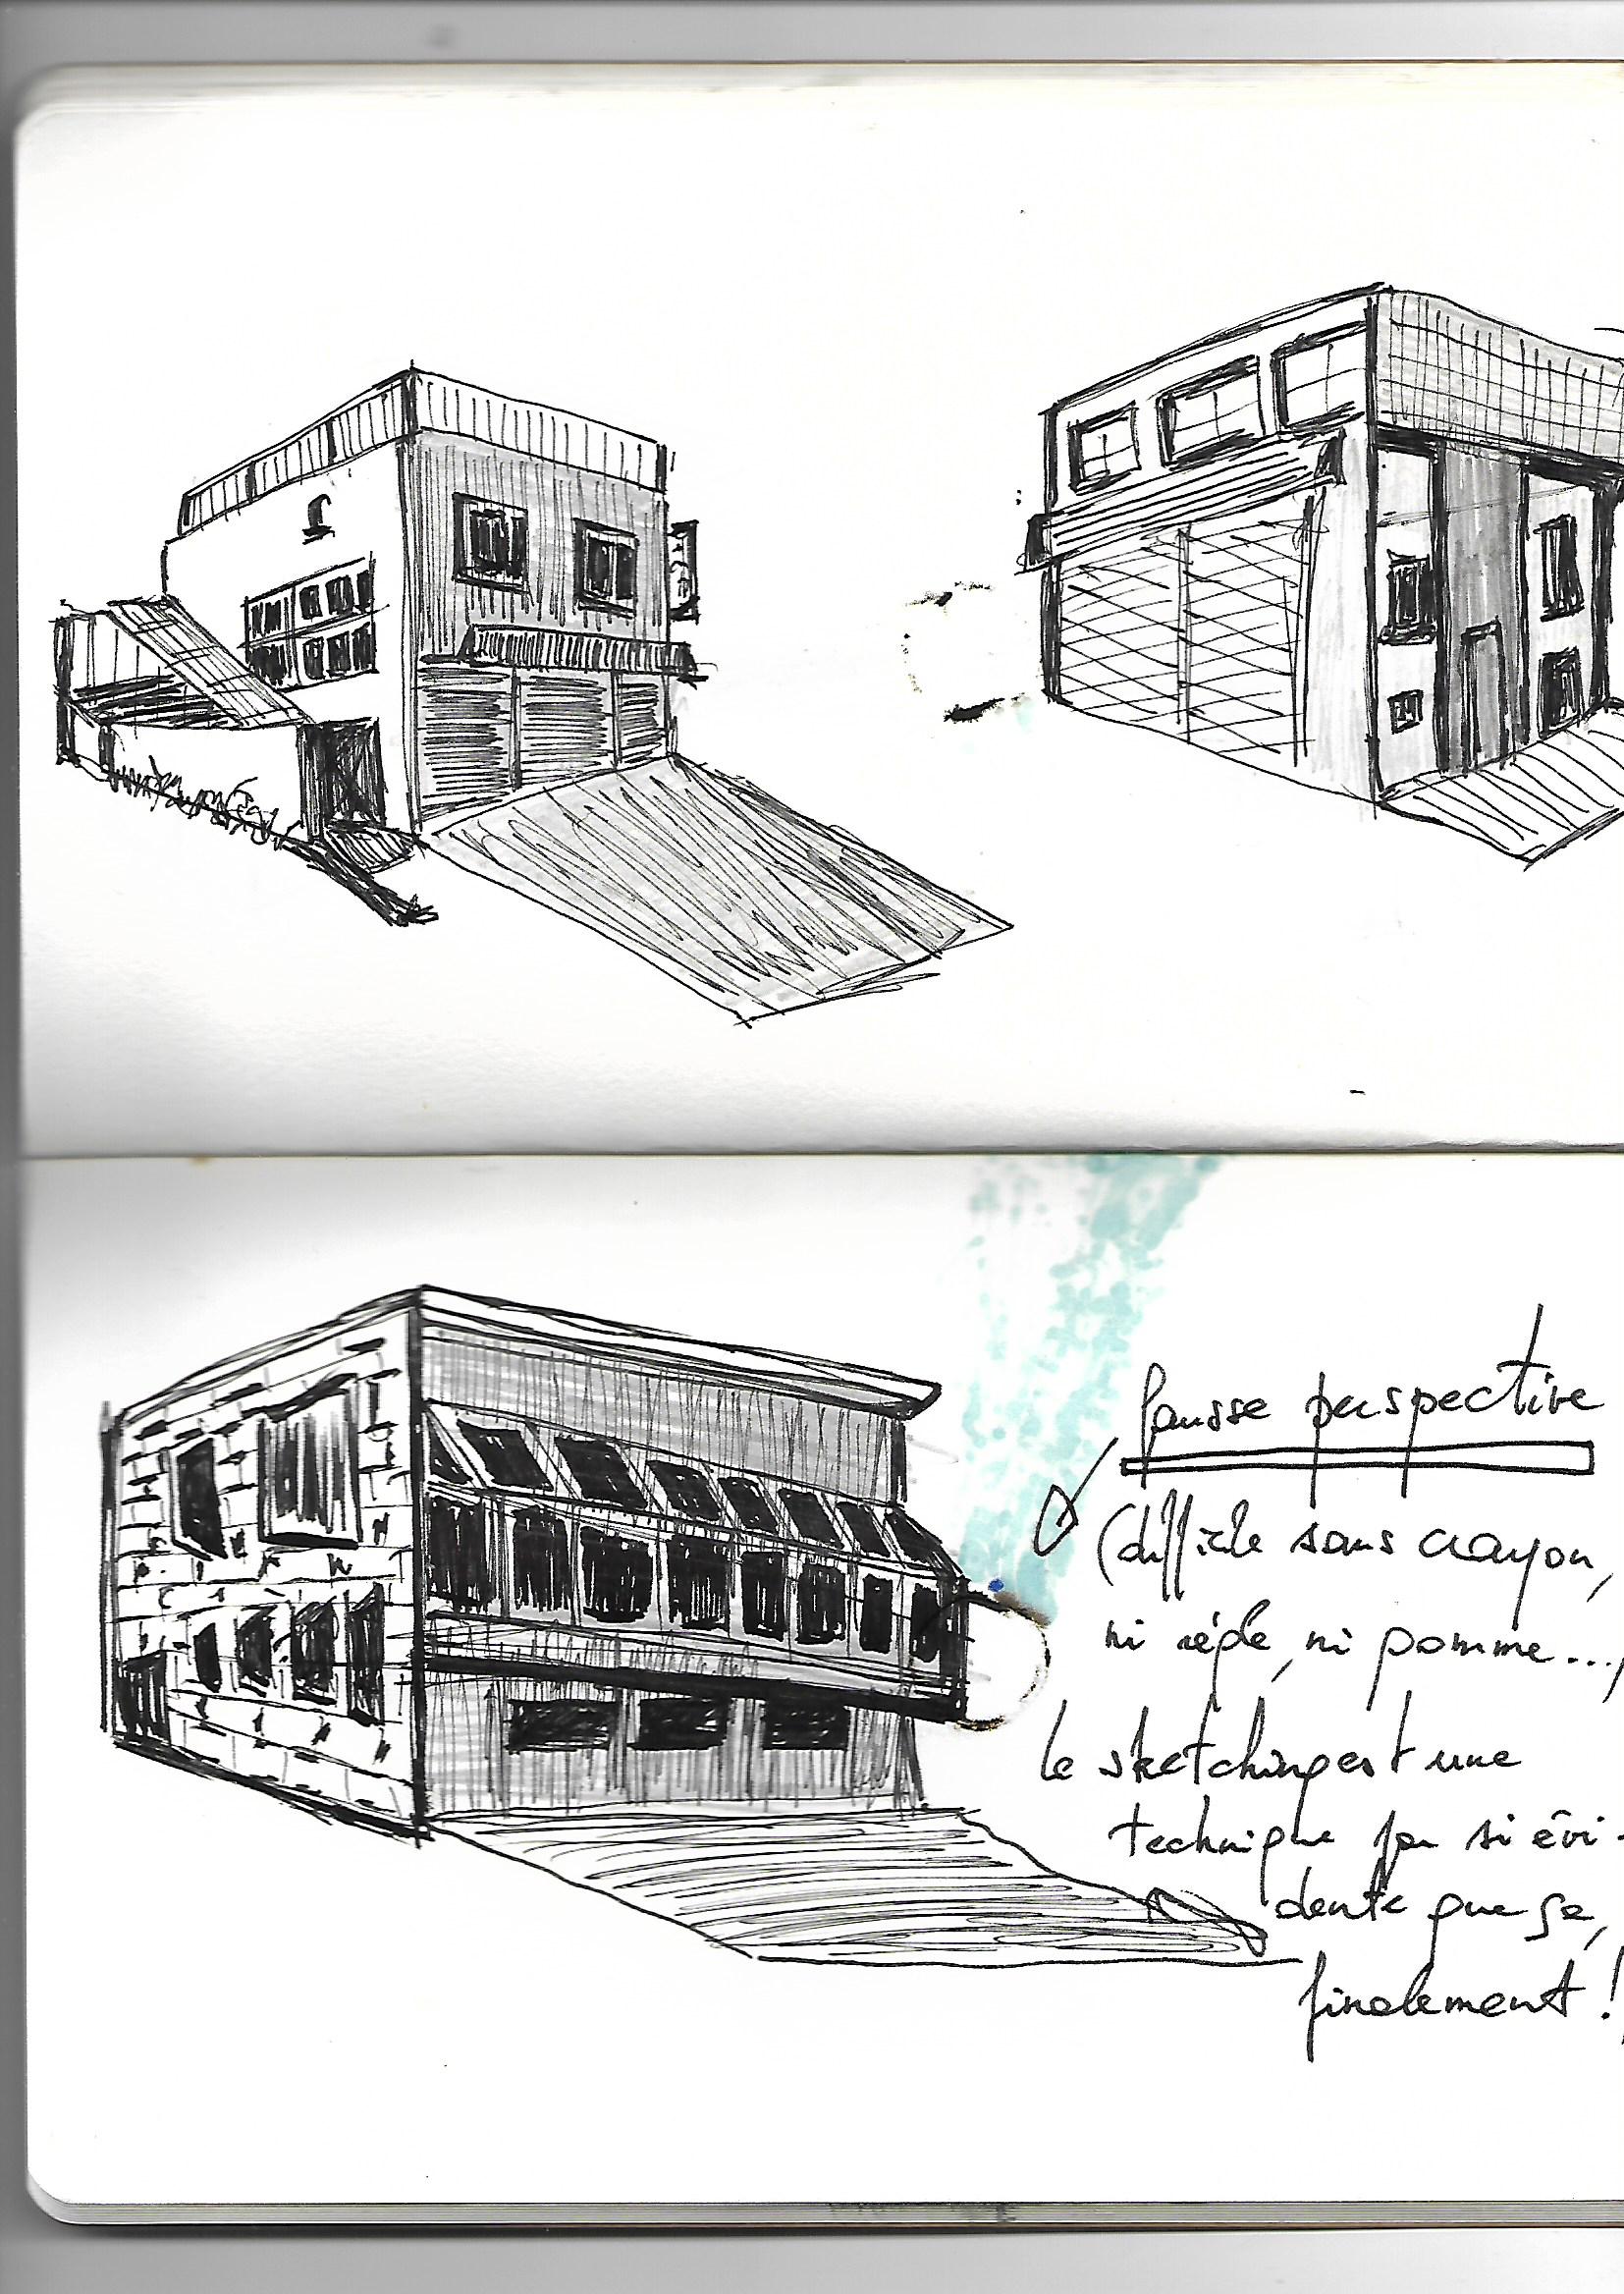 fausse perspective
(difficile sans crayon,
ni règle, ni pomme...)
le sketching est une
technique pas si évi-
dente que ça,
finalement !